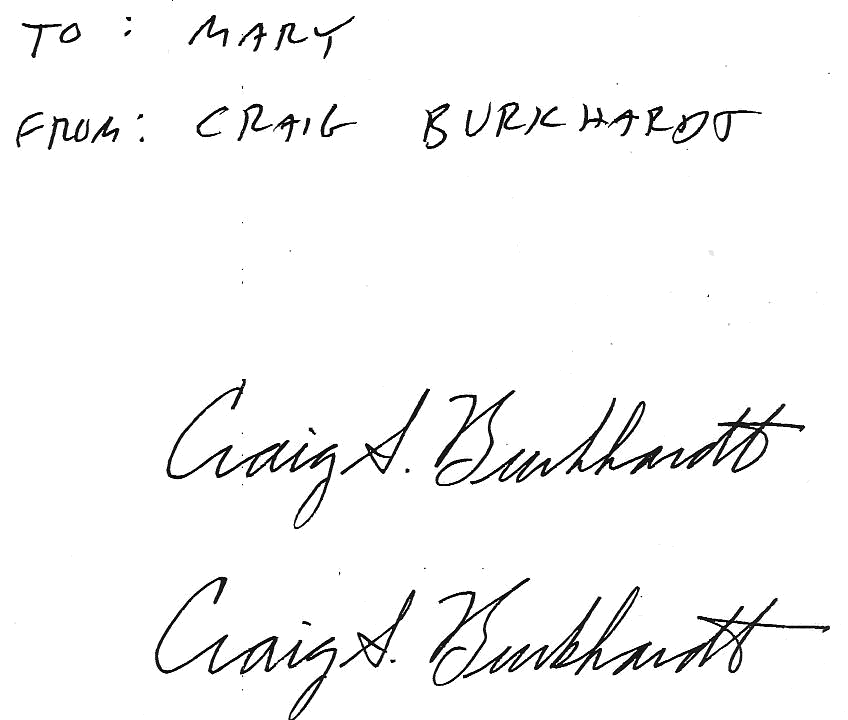 TO : MARY
FROM: CRAIG BURKHARDT
Craig S. Burkhardt
Craig S. Burkhardt